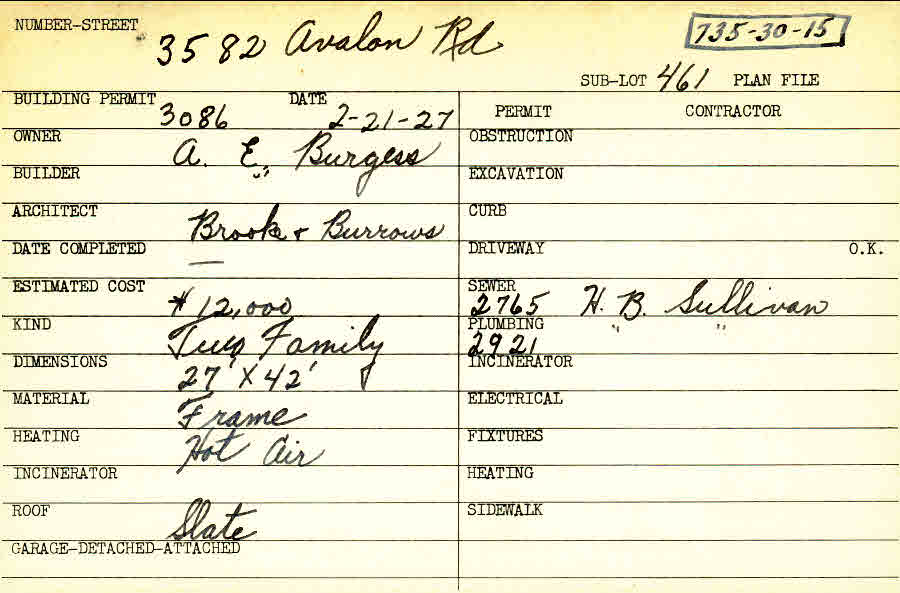 NUMBER-STREET 3582 Avalon Rd 735-30-15
SUB-LOT 461 PLAN FILE
BUILDING PERMIT 3086 DATE 2-21-27
OWNER A. E. Burgess
BUILDER " "
ARCHITECT Brooke & Burrows
DATE COMPLETED —
ESTIMATED COST $12,000
KIND Two Family
DIMENSIONS 27' X 42'
MATERIAL Frame
HEATING Hot Air
INCINERATOR
ROOF Slate
GARAGE-DETACHED-ATTACHED
PERMIT CONTRACTOR
OBSTRUCTION
EXCAVATION
CURB
DRIVEWAY O.K.
SEWER 2765 H. B. Sullivan
PLUMBING 2921 " "
INCINERATOR
ELECTRICAL
FIXTURES
HEATING
SIDEWALK